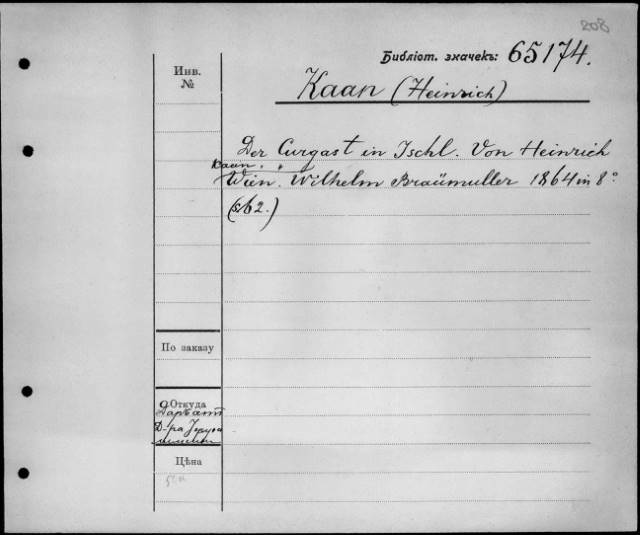 208
Библіот. значекъ: 65174.
Инв.
№
Kaan (Heinrich)
Der Curgast in Ischl. Von Heinrich
Kaan.
Wien. Wilhelm Braümuller 1864 in 8°
(s. 62.)
По заказу
Откуда
Д-ра
Цѣна